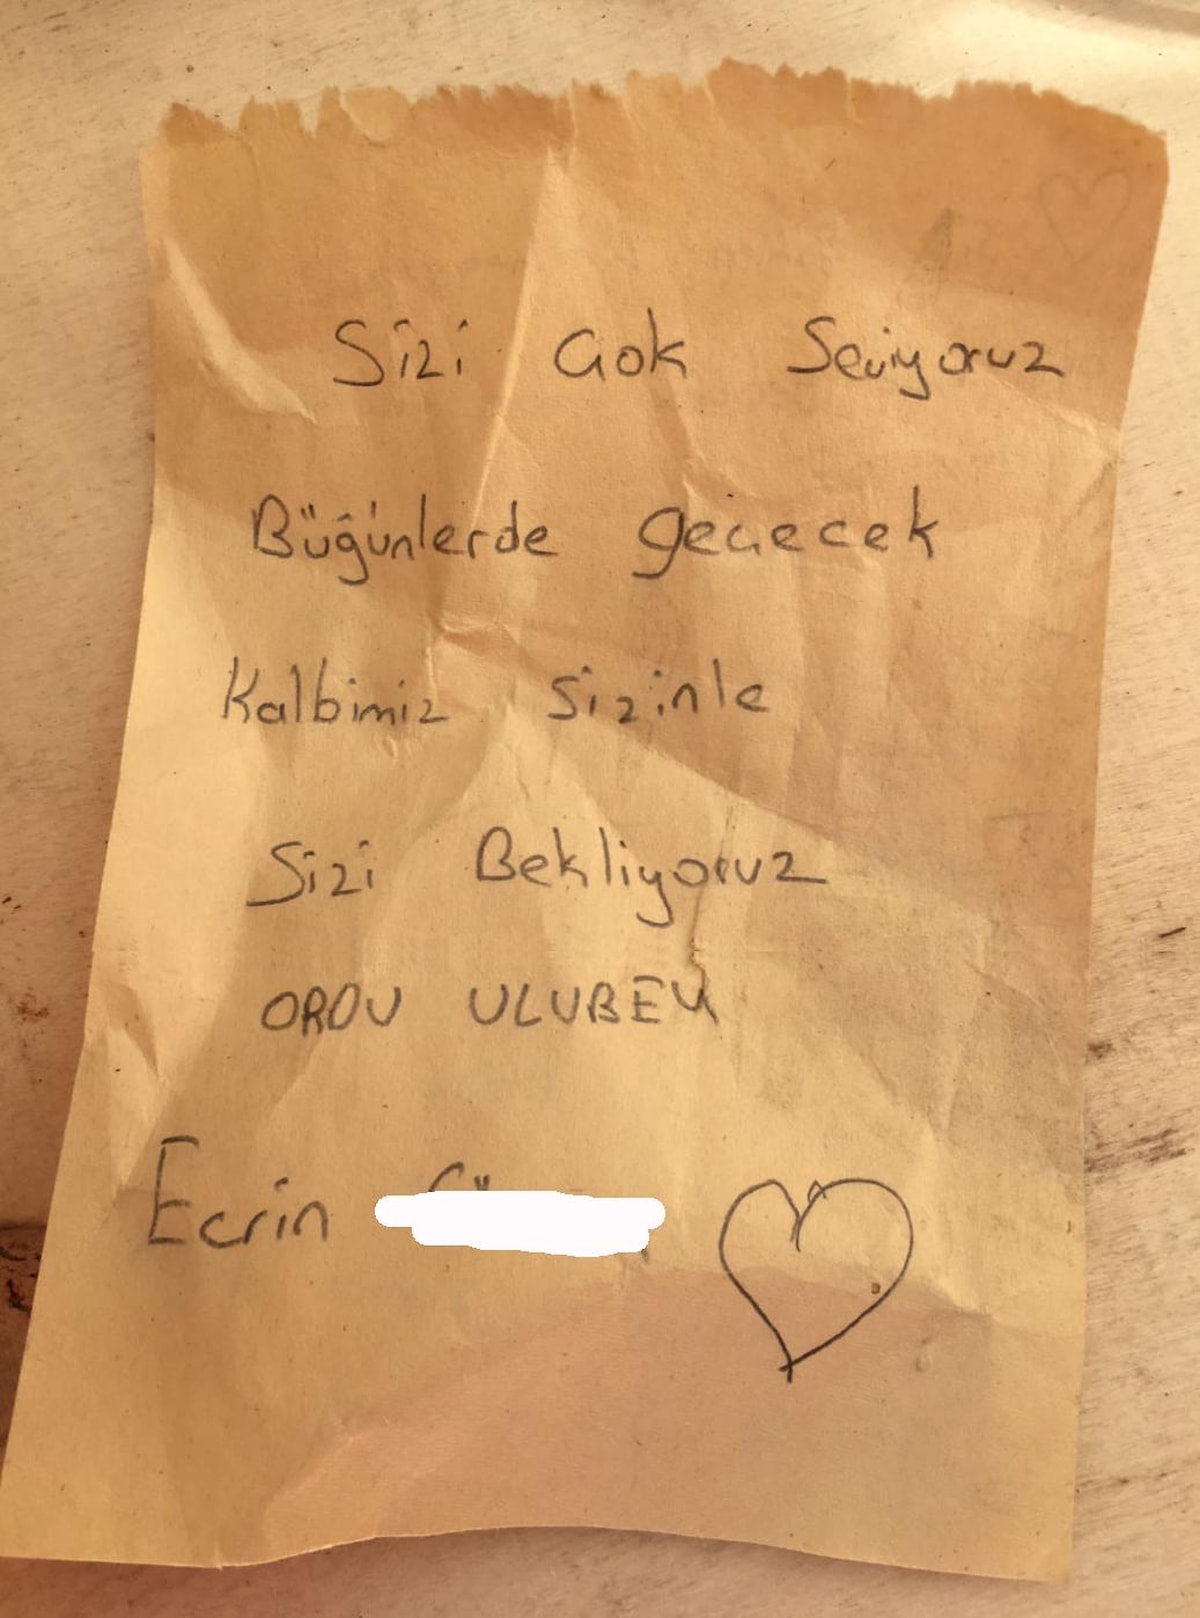 Sizi Çok Seviyoruz
Büğünlerde geçecek
Kalbimiz sizinle
Sizi Bekliyoruz
ORDU ULUBEY
Ecrin